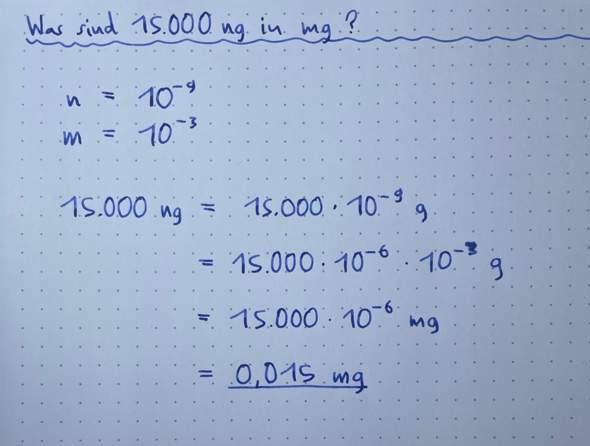 Was sind 15.000 ng in mg?
n = 10⁻⁹
m = 10⁻³
15.000 ng = 15.000 · 10⁻⁹ g
= 15.000 · 10⁻⁶ · 10⁻³ g
= 15.000 · 10⁻⁶ mg
= 0,015 mg